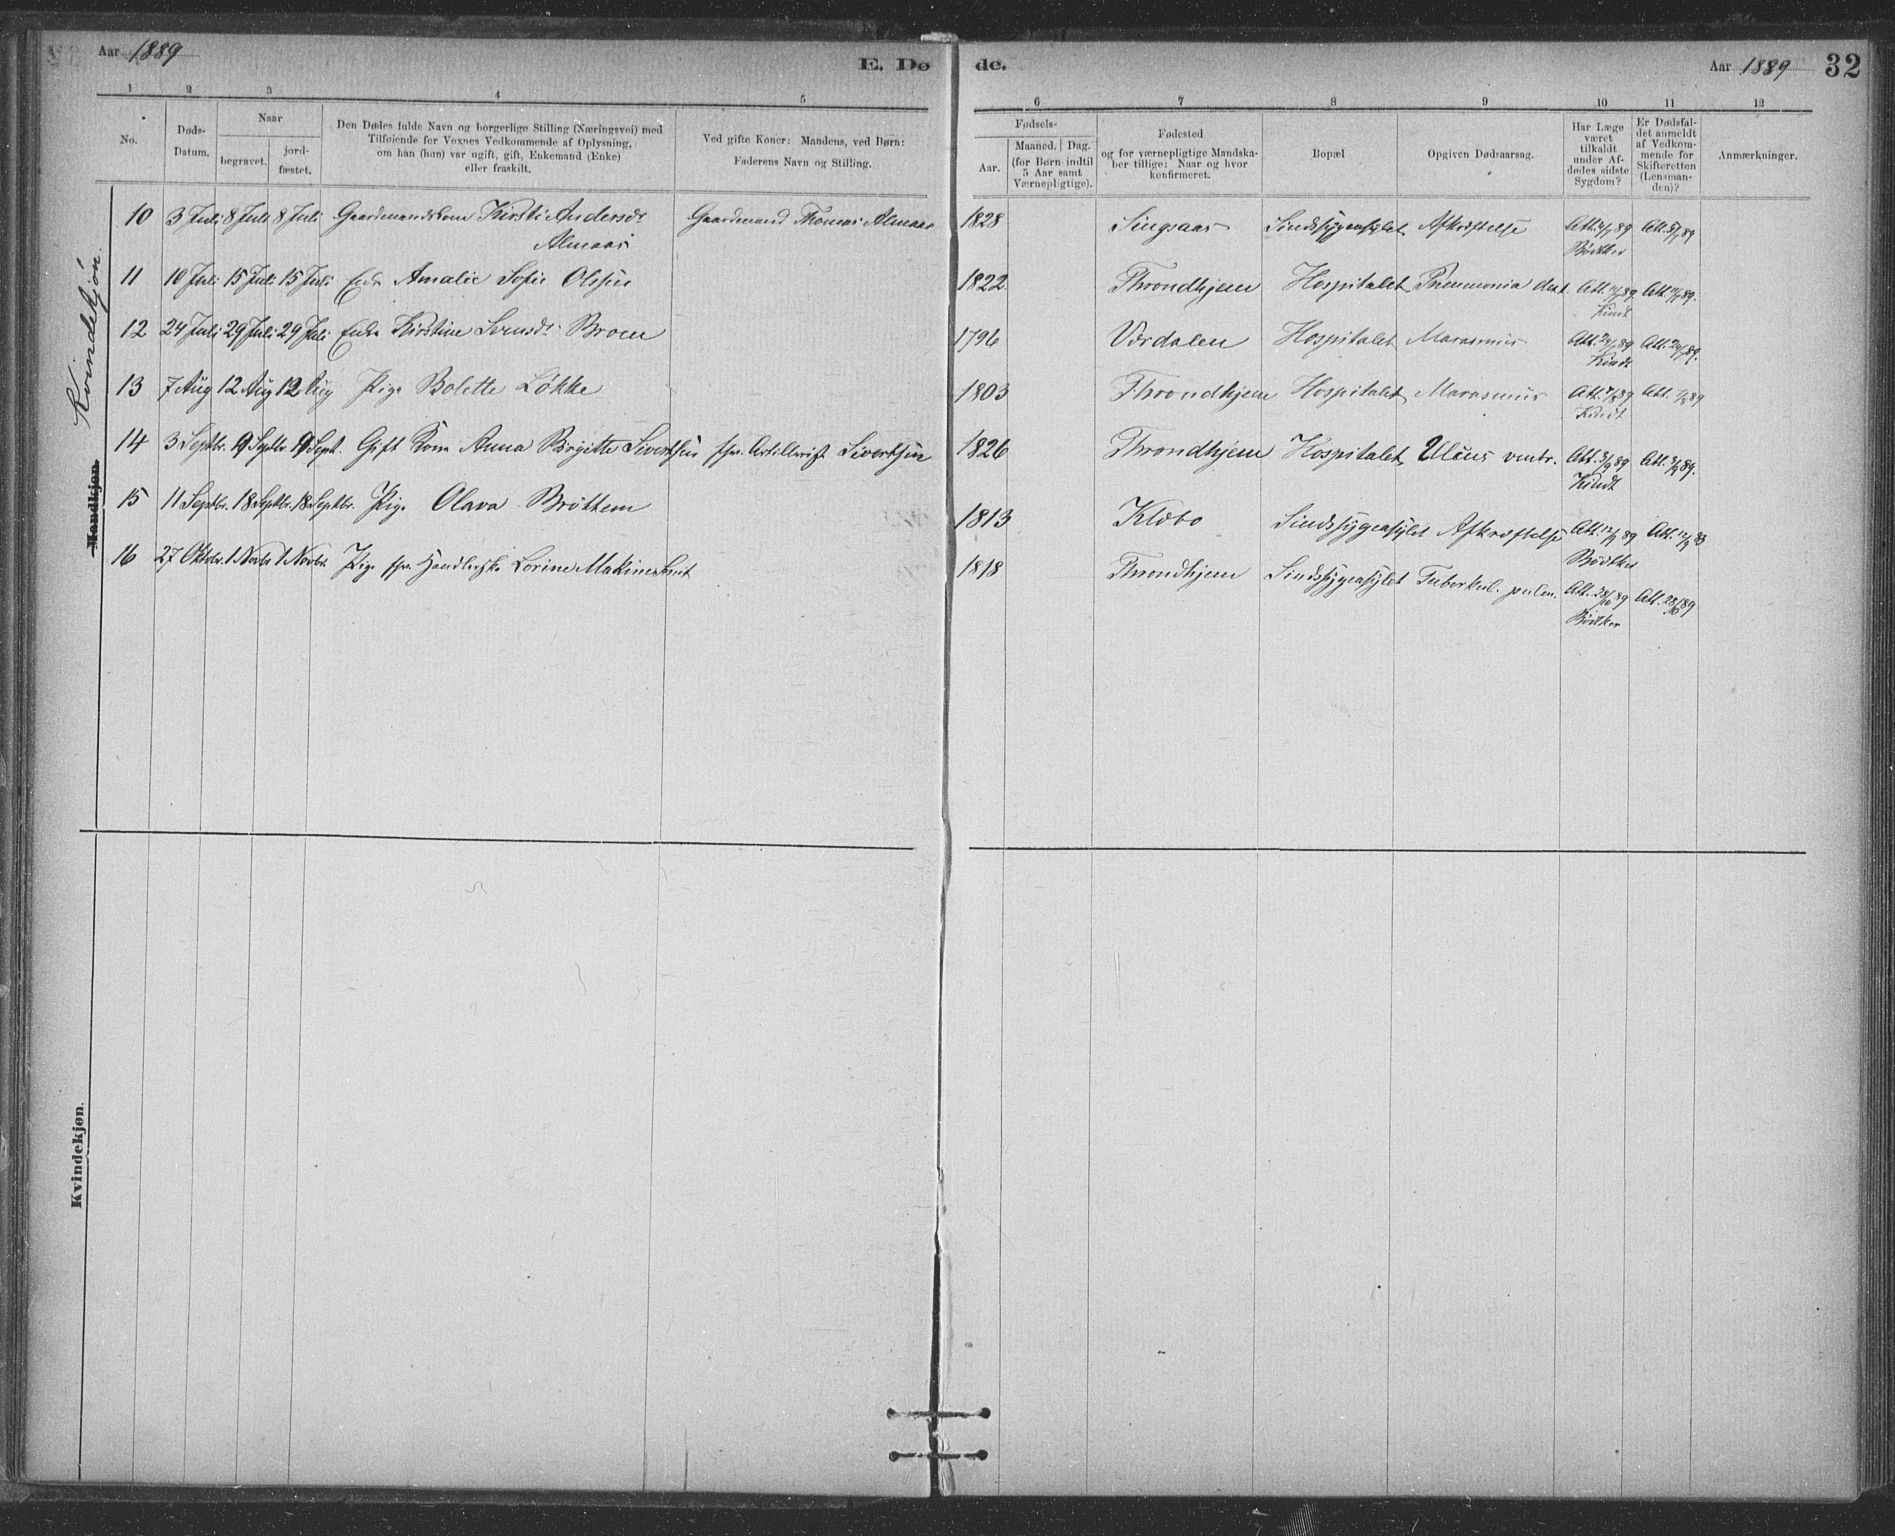 Aar 1889
E. Dø
de.
Aar 1889
32
1 2 3 4 5
6 7 8 9 10 11 12
No.
Døds-
Datum.
Naar
begravet.
jord-
fæstet.
Den Dødes fulde Navn og borgerlige Stilling (Næringsvei) med
Tilføiende for Voxnes Vedkommende af Oplysning,
om han (hun) var ugift, gift, Enkemand (Enke)
eller fraskilt.
Ved gifte Koner: Mandens, ved Børn:
Faderens Navn og Stilling.
Fødsels-
Aar.
Maaned. Dag.
(for Børn indtil
5 Aar samt
Værnepligtige).
Fødested
og for værnepligtige Mandska-
ber tillige: Naar og hvor
konfirmeret.
Bopæl
Opgiven Dødsaarsag.
Har Læge
været
tilkaldt
under Af-
dødes sidste
Sygdom?
Er Dødsfal-
det anmeldt
af Vedkom-
mende for
Skifteretten
(Lensman-
den)?
Anmærkninger.
Kvindekjøn.
Mandkjøn.
10 3 Juli 8 Juli 8 Juli Gaardmandskone Kirsti Andersdr Gaardmand Thomas Almaas 1828 Singsaas Sindssygeasylet Afkræftelse Att. 4/7 89 Att. 5/7 89
Almaas Bödtker
11 10 Juli 15 Juli 15 Juli Enke Amalie Sofie Olssen 1822 Throndhjem Hospitalet Pneumonia dext Att. 11/7 89. Att. 11/7 89.
Kindt
12 24 Juli 29 Juli 29 Juli Enke Kirstine Svensdr Broen 1796 Værdalen Hospitalet Marasmus Att. 24/7 89 Att. 24/7 89.
Kindt
13 7 Aug 12 Aug 12 Aug Pige Bolette Løkke 1803 Throndhjem Hospitalet Marasmus Att. 7/8 89 Att. 7/8 89
Kindt
14 3 Septbr. 9 Septbr. 9 Sept. Gift Kone Anna Birgitte Sivertsen fhv. Artillerist Sivertsen 1826 Throndhjem Hospitalet Ulcus ventr. Att. 3/9 89 Att. 3/9 89.
Kindt
15 11 Septbr. 18 Septbr. 18 Septbr. Pige Olava Brøttem 1813 Klæbo Sindssygeasylet Afkræftelse Att. 12/9 89 Att. 12/9
Bödtker
16 27 Oktobr. 1 Novbr 1 Novbr. Pige fhv. Handlerske Lorine Smit 1818 Throndhjem Sindssygeasylet Tuberkul. pulm. Att. 28/10 89 Att. 28/10 89
Bödtker
Kvindekjøn.